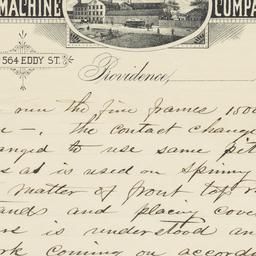 MACHINE COMPA
564 EDDY ST.
Providence,
run the fine frames 1500
e —. The contact change
anged to use same pit
s as is used on spinny
matter of front top r
ands and placing cove
rs is understood an
rk coming on accord